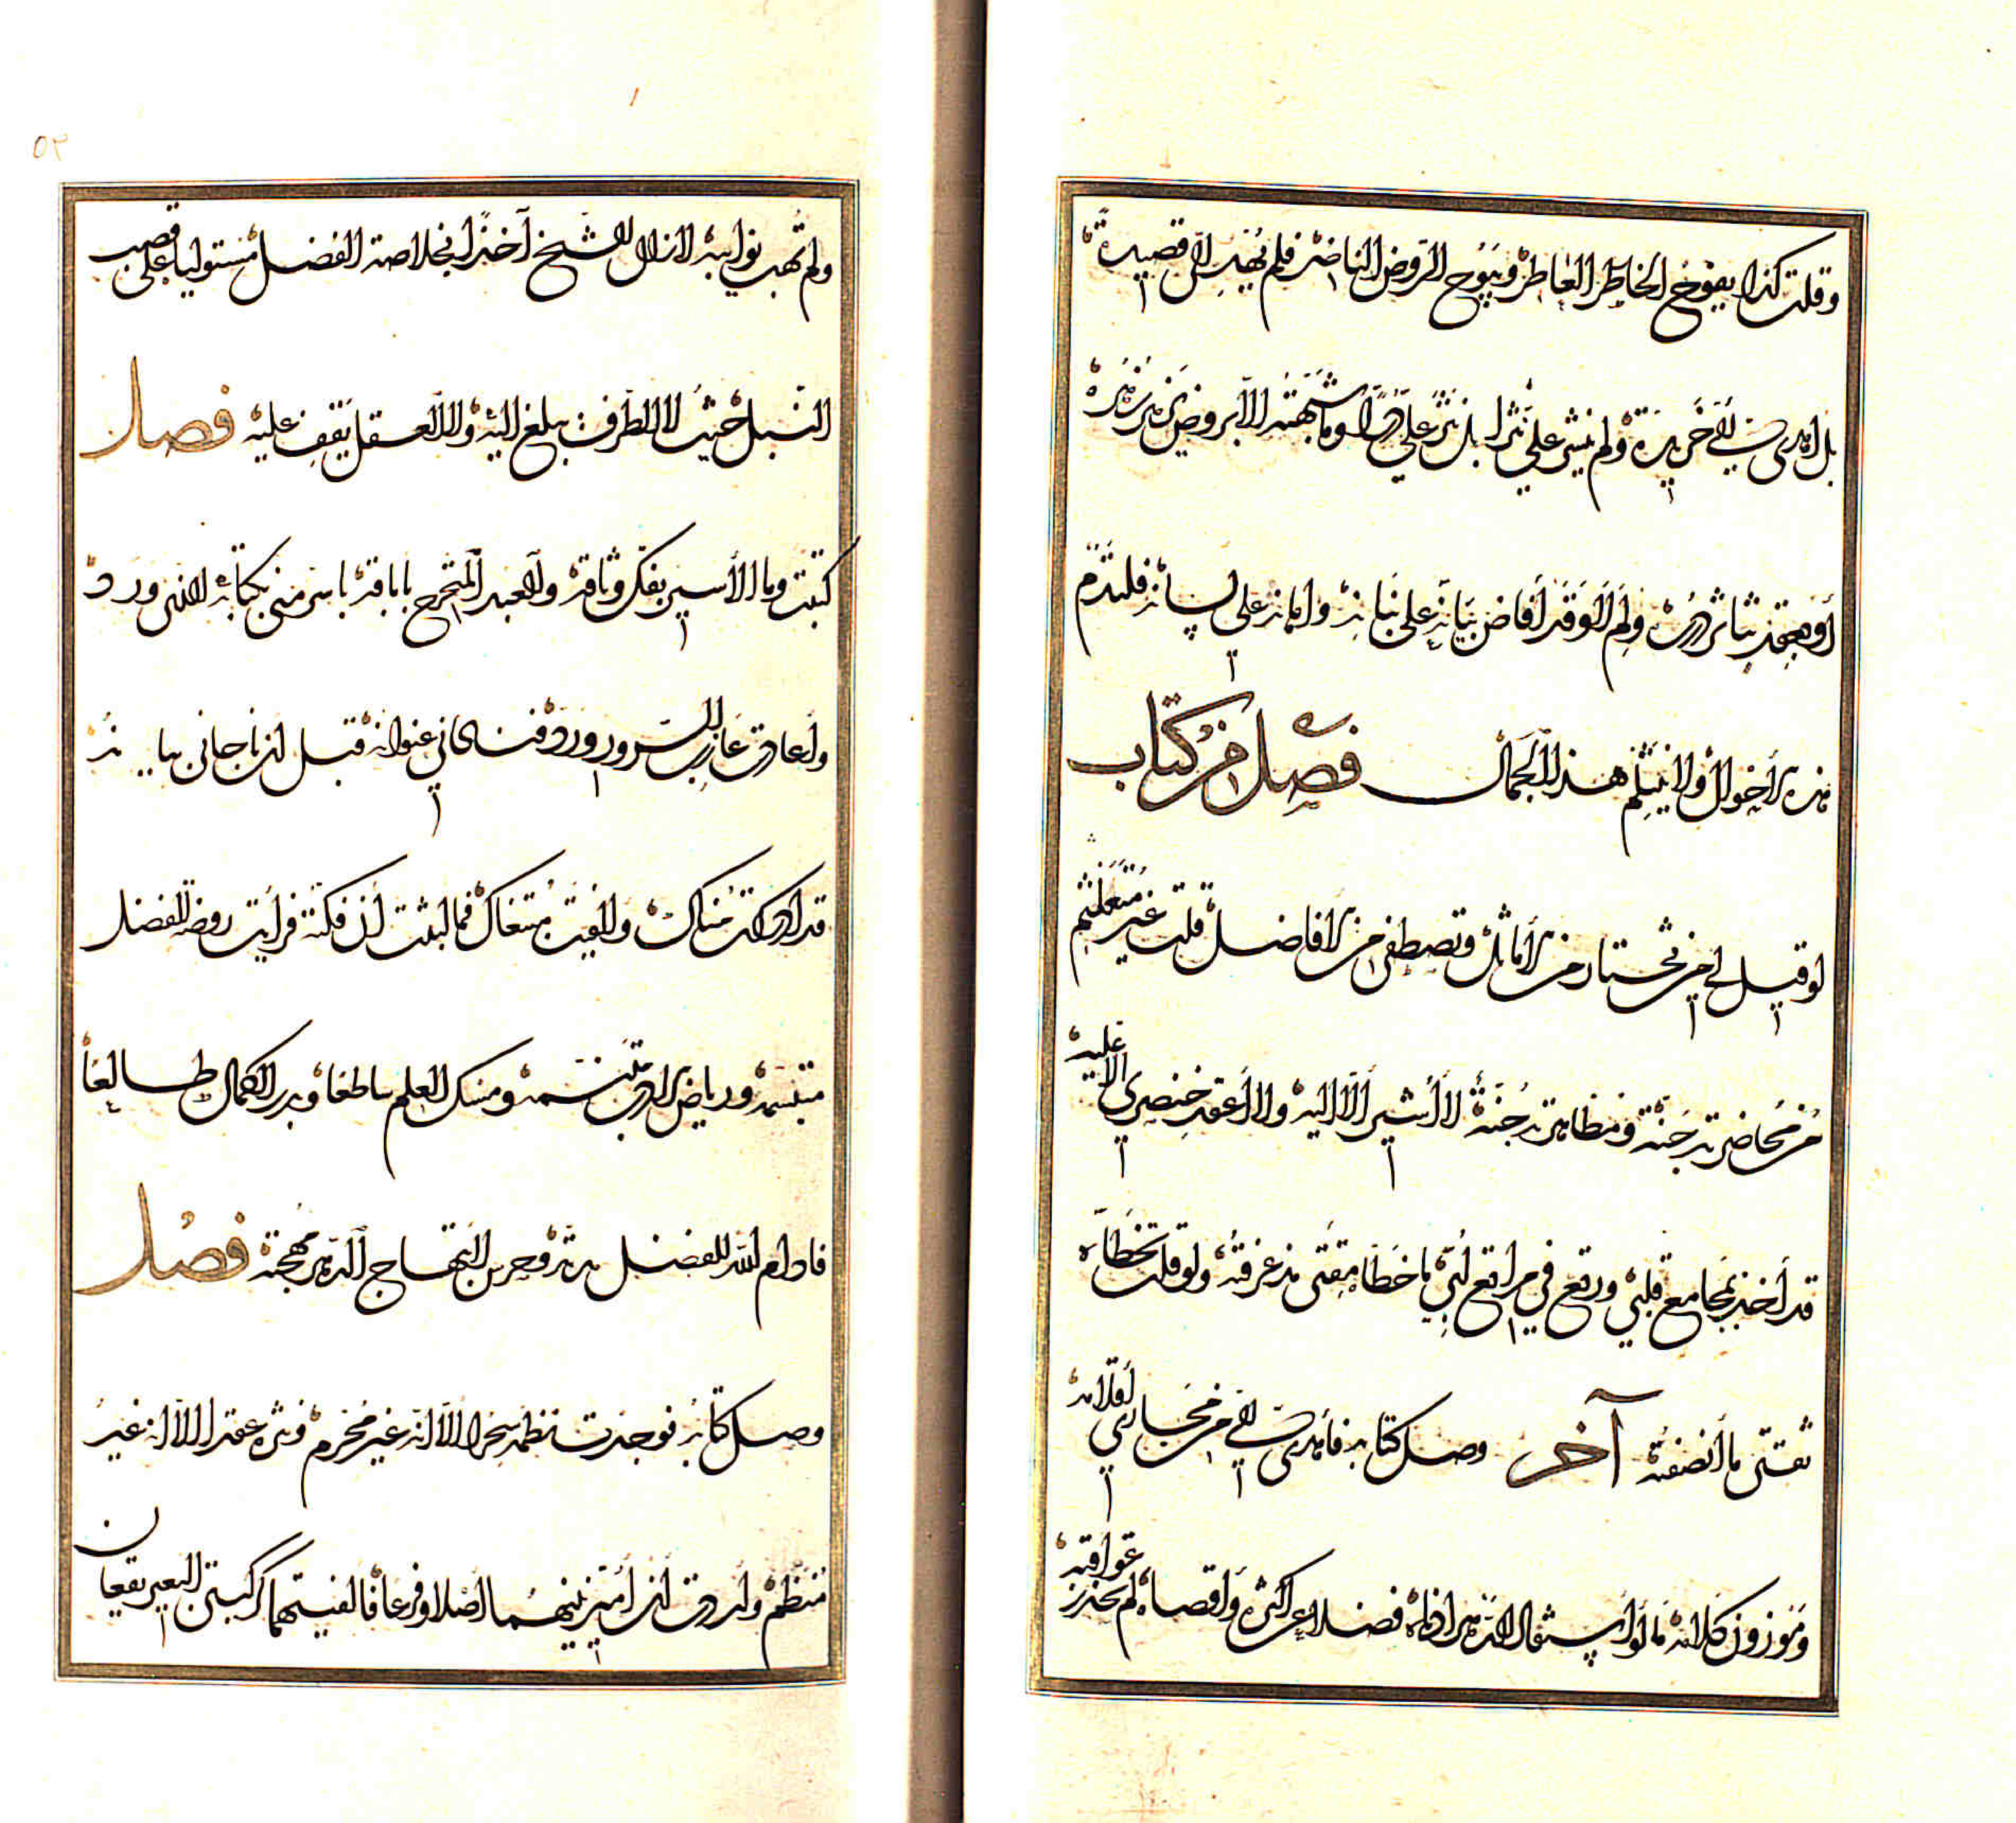 وقلت كذا يفوح الخاطر العاطر ويبوح الروض الناضر فلم يهب لي قصيدة
بل اهدى الي خريدة ولم ينثر علي نثرا بل نثر علي درا وما شبهته الا بروض زهره
أو بعقد تناثر دره ولم لا وقد أفاض بيانه على بنانه واملاه على لسانه فلتدم
هذه الأحوال ولا ينثلم هذا الجمال فصل من كتاب
لو قيل لي من تختار من الأماثل وتصطفي من الافاضل قلت غير متلعثم
من محاضرته جنة ومظاهرته جنة لا أشير الا اليه ولا أعقد خنصري الا عليه
قد أخذ بمجامع قلبي ورتع في مراتع لبي ما خطا مقتى مذ عرفته ولو قلت تخطاه
ثقتي ما أنصفته آخر وصل كتابه فأهدى الي من مجاري أقلامه
وموزون كلامه ما لو استقال الدهر اذاه فضلا عن اكثره واقصاه لم يحذر عواقبه
ولم تهب نوائبه لا زال الشيخ آخذا بخلاصة الفضل مستوليا على قصب
النبل حيث لا الطرف يبلغ اليه ولا العقل يقف عليه فصل
كتبت وما الأسير بفك وثاقه والعبد المتحرج باباقه باسر مني بكتابه الذي ورد
وأعاد عازب السرور ورد فناداني عنوانه قبل ان ناجاني بيانه
قد ادركت مناك والفيت مبتغاك فما لبثت أن فككته فرأيت روضة الفضل
متبسمة ورياض الادب متنسمة ومسك العلم ساطعا وبدر الكمال طالعا
فادام الله للفضل مدته وحرس لابتهاج الدهر مهجته فصل
وصل كتابه فوجدت نظمه سحرا الا انه غير محرم ونثره عقدا الا انه غير
منظم وأردت أن أميز بينهما أصلا وفرعا فالفيتهما كركبتي البعير يقعان